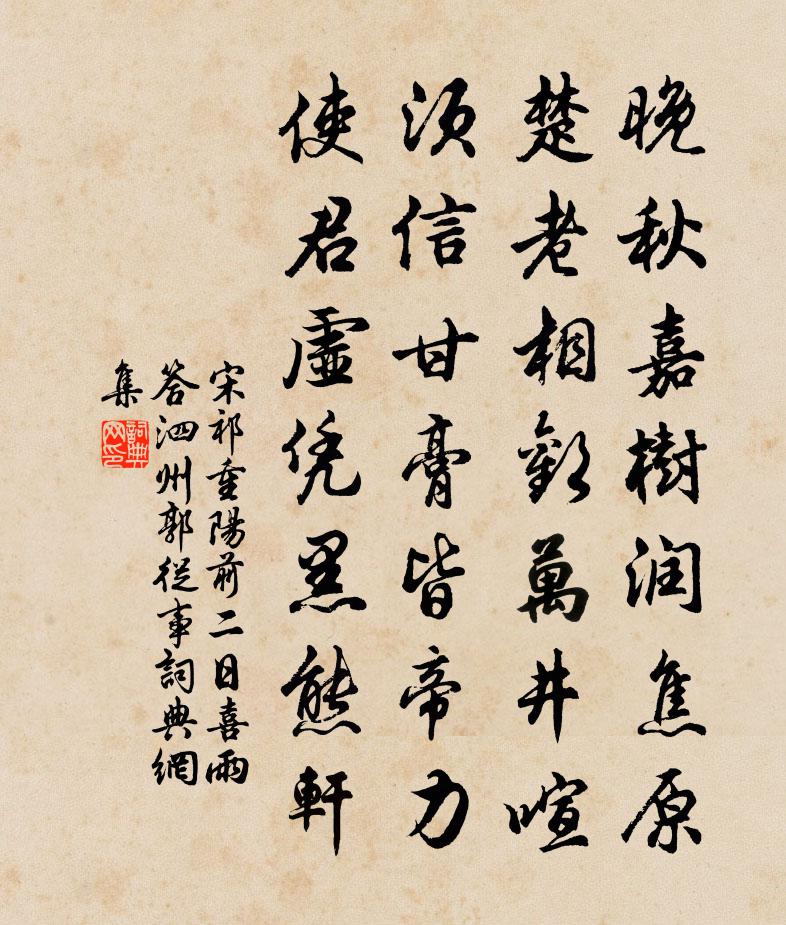 晚秋嘉樹润焦原
楚老相歡萬井喧
须信甘膏皆帝力
使君虛凭黑熊軒
宋祁重陽前二日喜雨
答泗州郭從事詞典網
集
詞典
网印